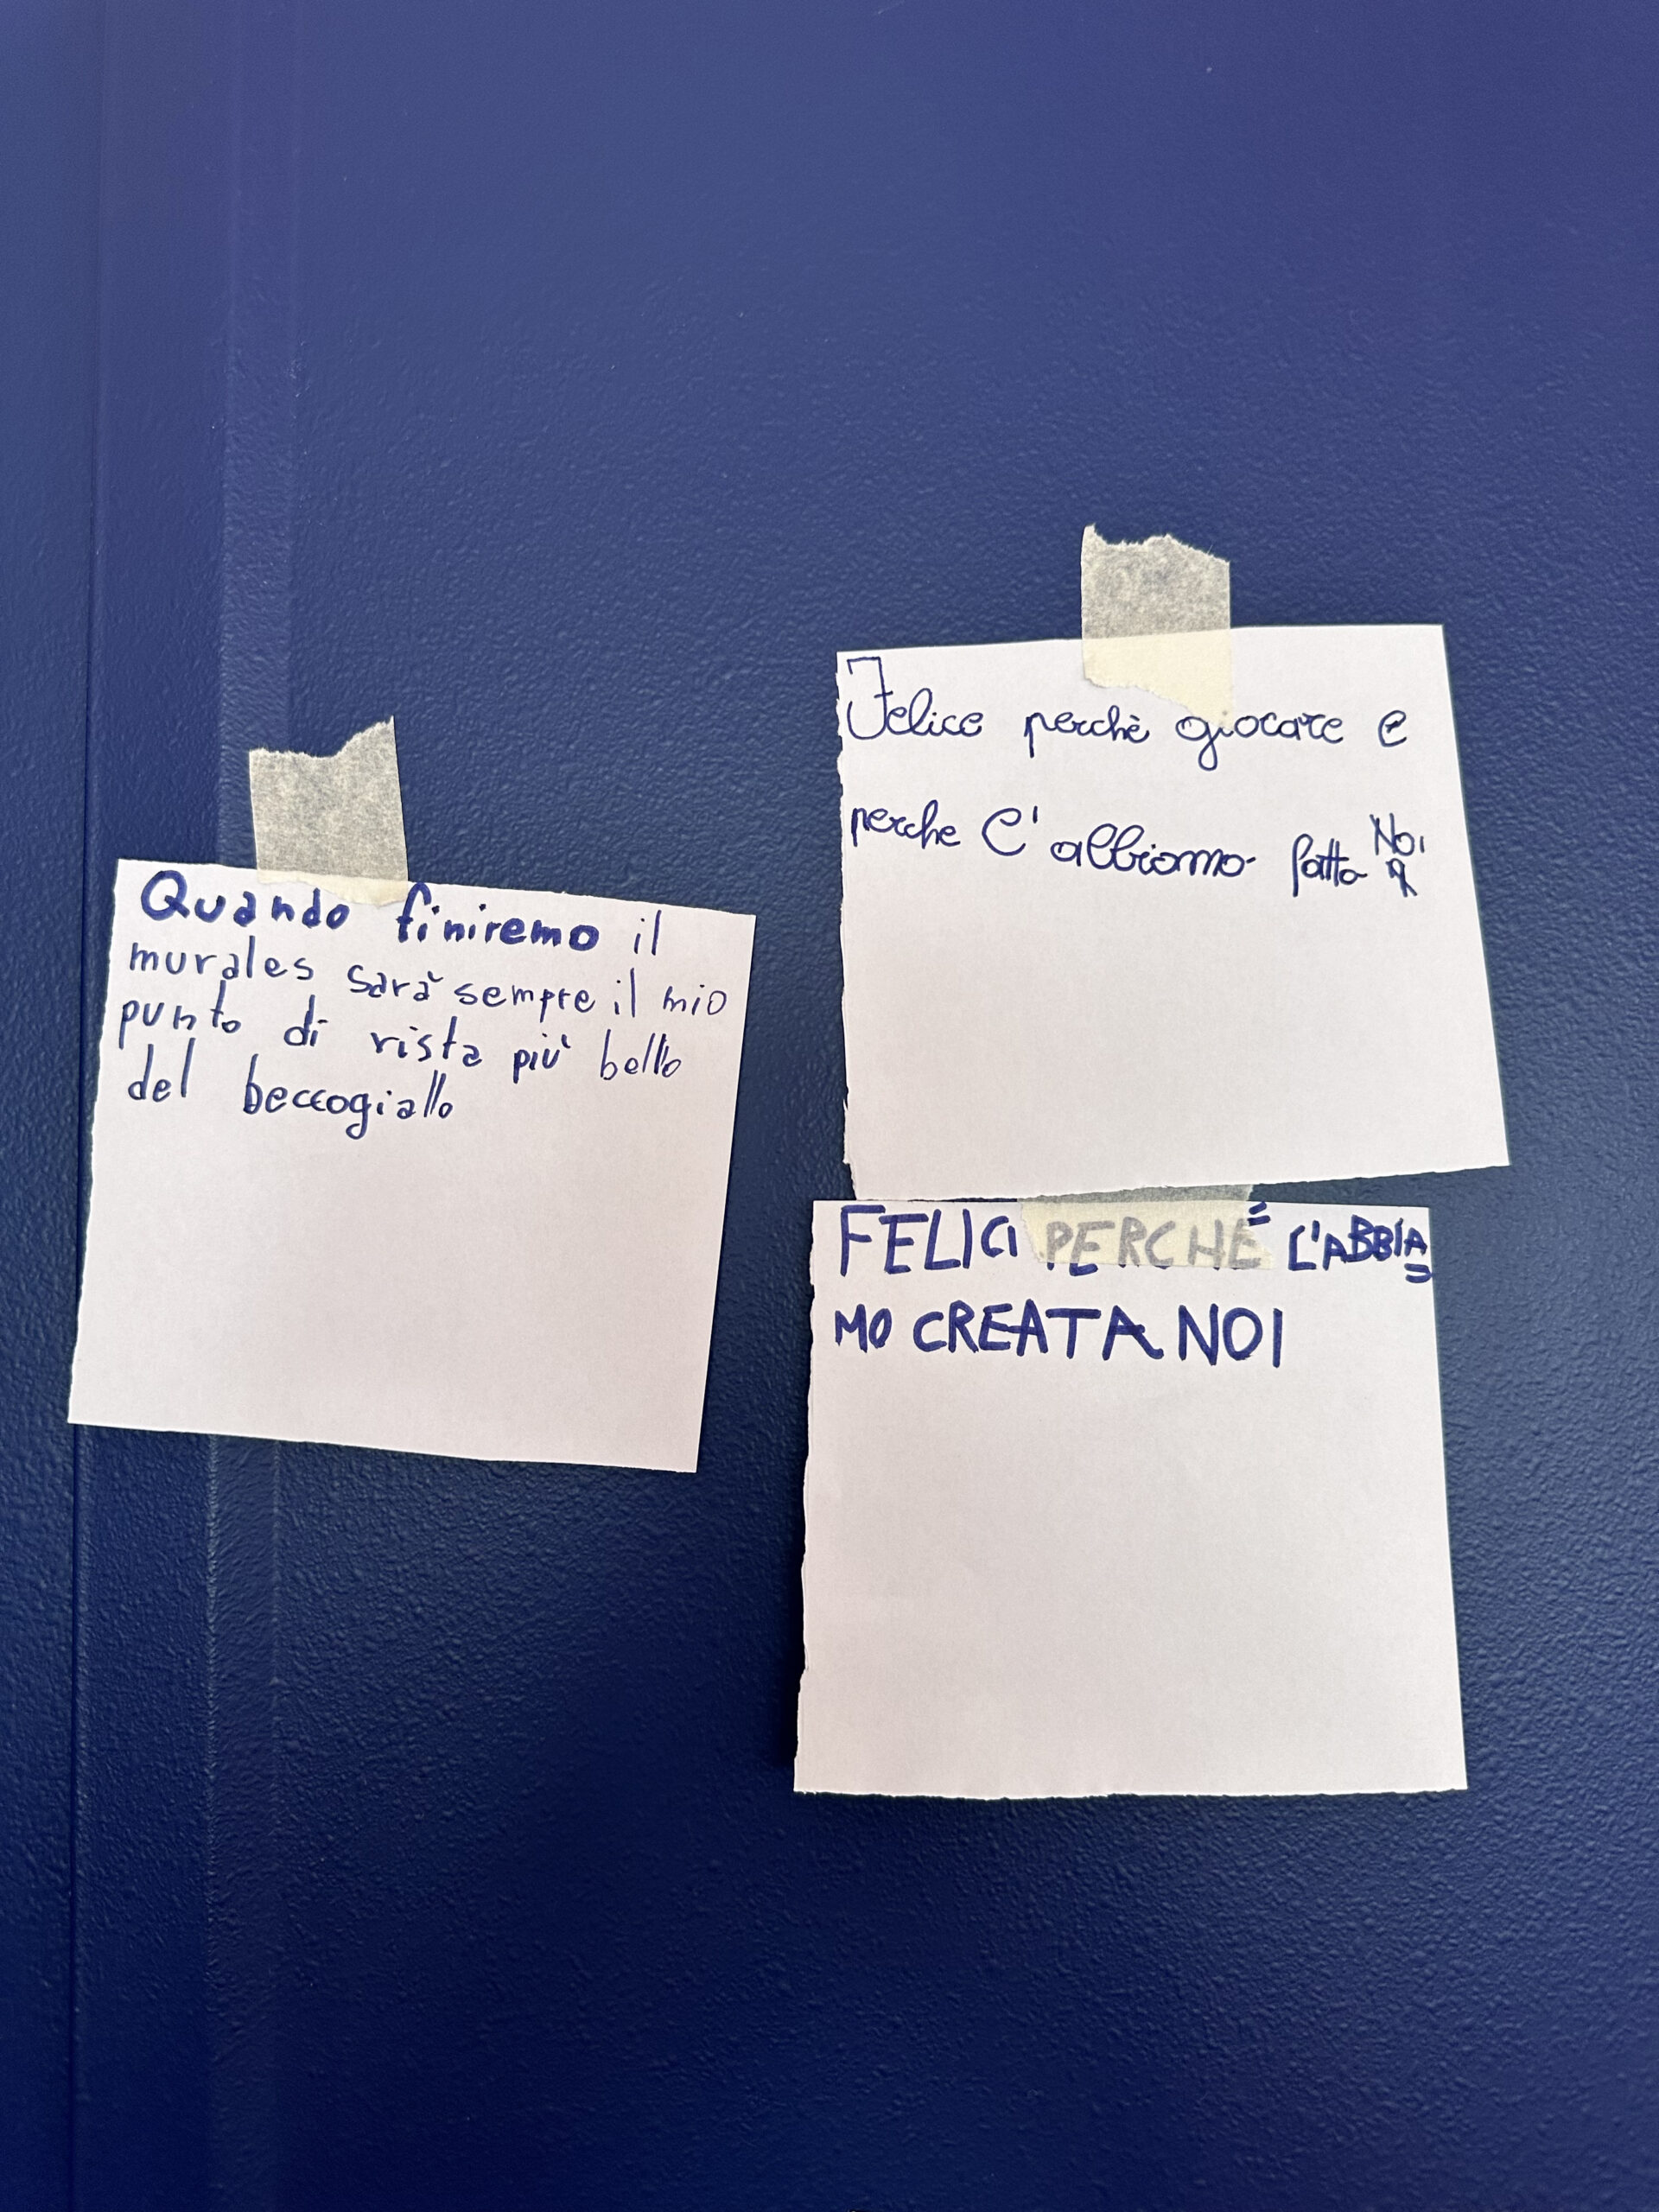 Quando finiremo il
murales sarà sempre il mio
punto di vista più bello
del beccogiallo
Felice perchè giocare e
perche l'abbiamo fatta Noi
FELICI PERCHÉ L'ABBIA=
MO CREATA NOI